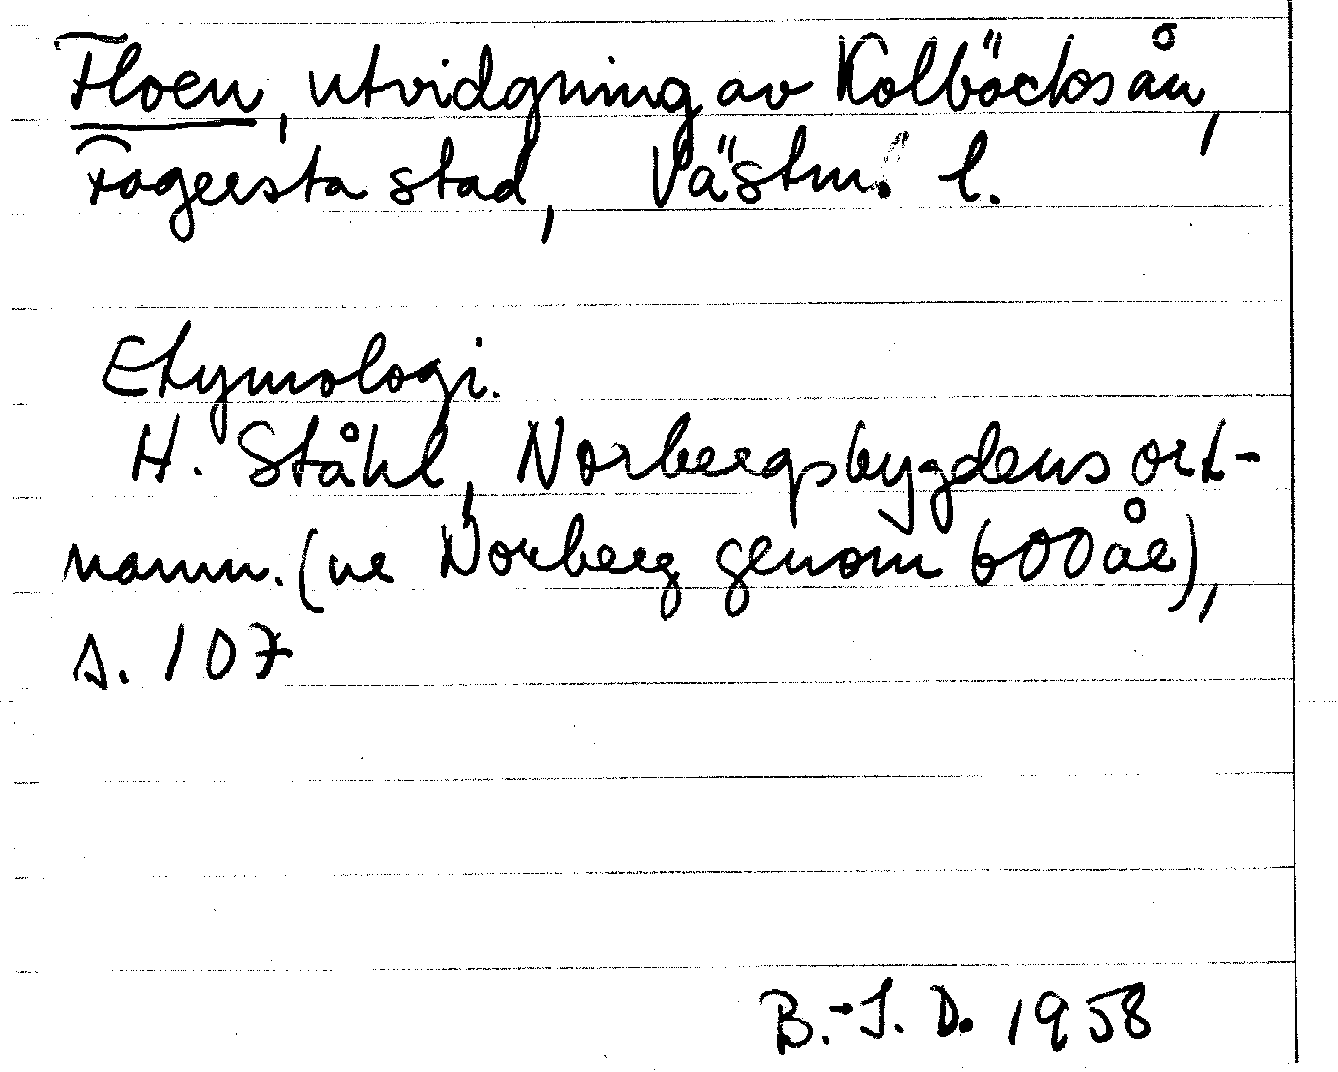 Floen, utvidgning av Kolbäcksån,
Fagersta stad, Västm. l.
Etymologi.
H. Ståhl, Norbergsbygdens ort-
namn. (ur Norberg genom 600 år),
s. 107
B.-I. D. 1958